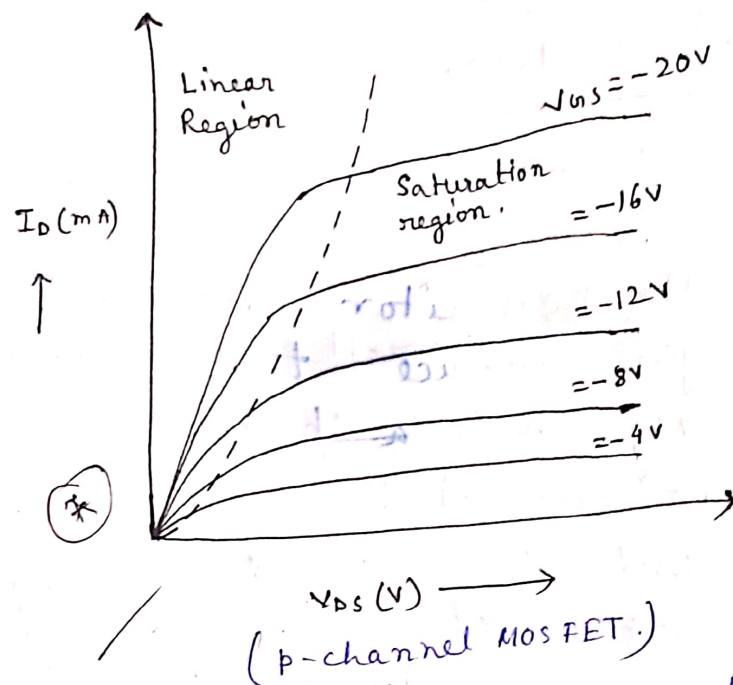 Linear
Region
V_GS = -20V
Saturation
region.
I_D (mA)
= -16V
= -12V
= -8V
= -4V
V_DS (V)
(p-channel MOSFET.)